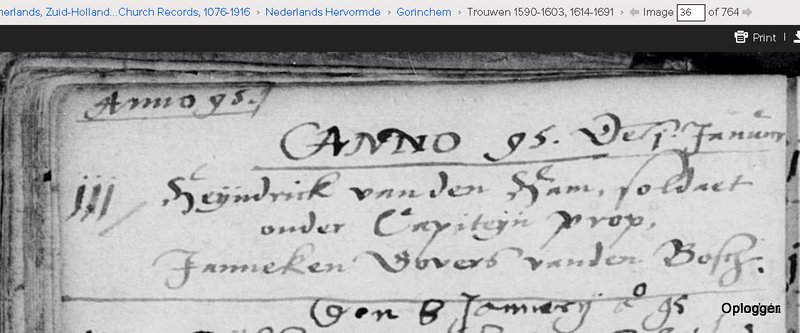 herlands, Zuid-Holland...Church Records, 1076-1916 › Nederlands Hervormde › Gorinchem › Trouwen 1590-1603, 1614-1691 › Image 36 of 764
Print
Anno 95.
ANNO 95. Den 1. Januar
iij Heyndrick van den Ham, soldaet
onder Capiteyn Prop,
Janneken Govers vanden Bosch.
Den 8 Januarij Ao 95
Oplogger